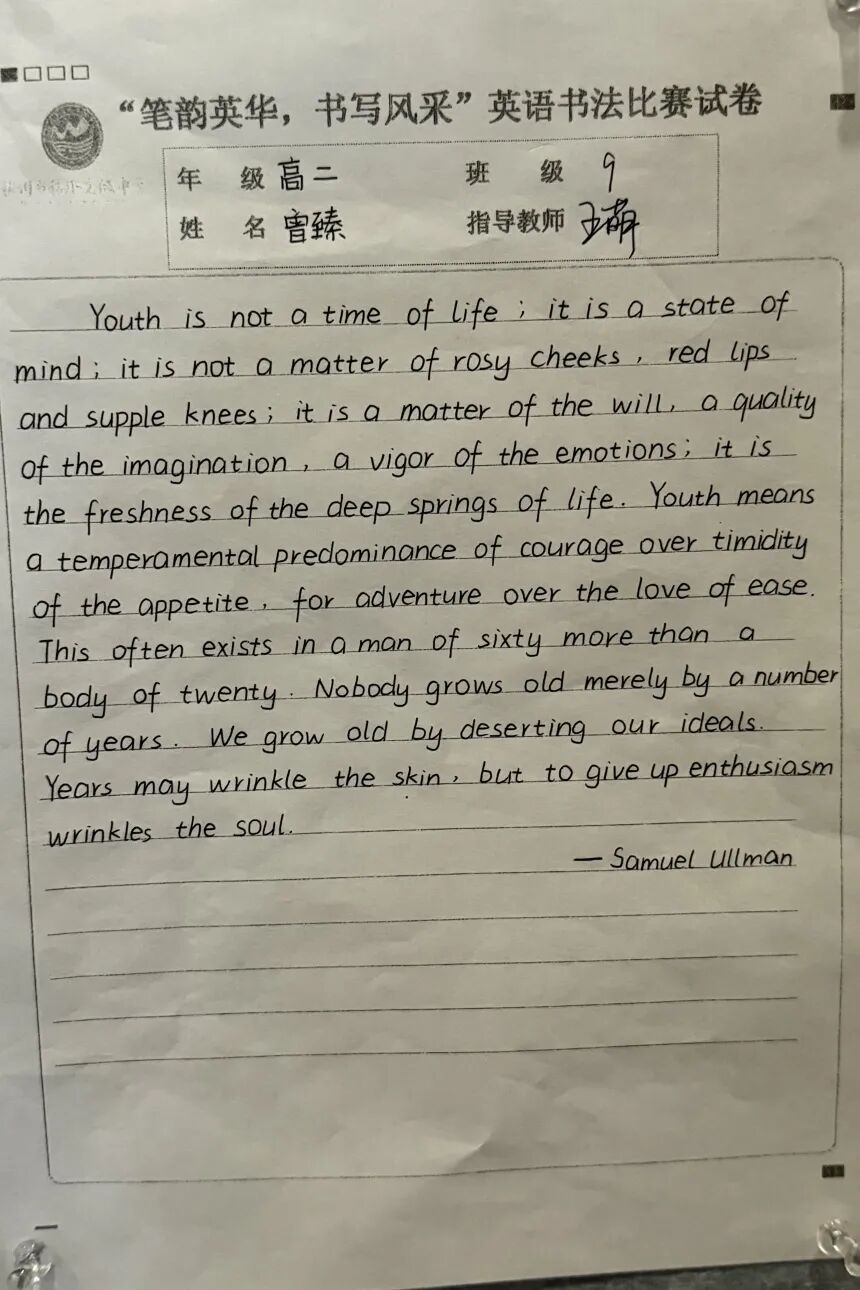 “笔韵英华，书写风采”英语书法比赛试卷
年 级 高二 班 级 9
姓 名 曾臻 指导教师 王萌
Youth is not a time of life ; it is a state of
mind ; it is not a matter of rosy cheeks , red lips
and supple knees ; it is a matter of the will , a quality
of the imagination , a vigor of the emotions ; it is
the freshness of the deep springs of life . Youth means
a temperamental predominance of courage over timidity
of the appetite , for adventure over the love of ease .
This often exists in a man of sixty more than a
body of twenty . Nobody grows old merely by a number
of years . We grow old by deserting our ideals .
Years may wrinkle the skin , but to give up enthusiasm
wrinkles the soul .
— Samuel Ullman